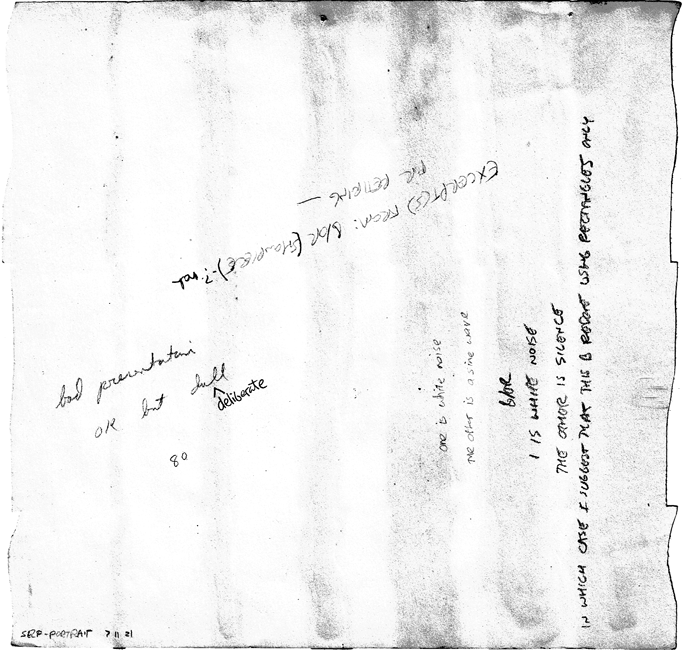 EXCERPT(S) FROM: B/OR
bad presentation
OK but dull
deliberate
80
one is white noise
the other is a sine wave
B/OR
1 IS WHITE NOISE
THE OTHER IS SILENCE
IN WHICH CASE I SUGGEST THAT THIS B REDONE USING RECTANGLES ONLY
SELF-PORTRAIT 7 11 21